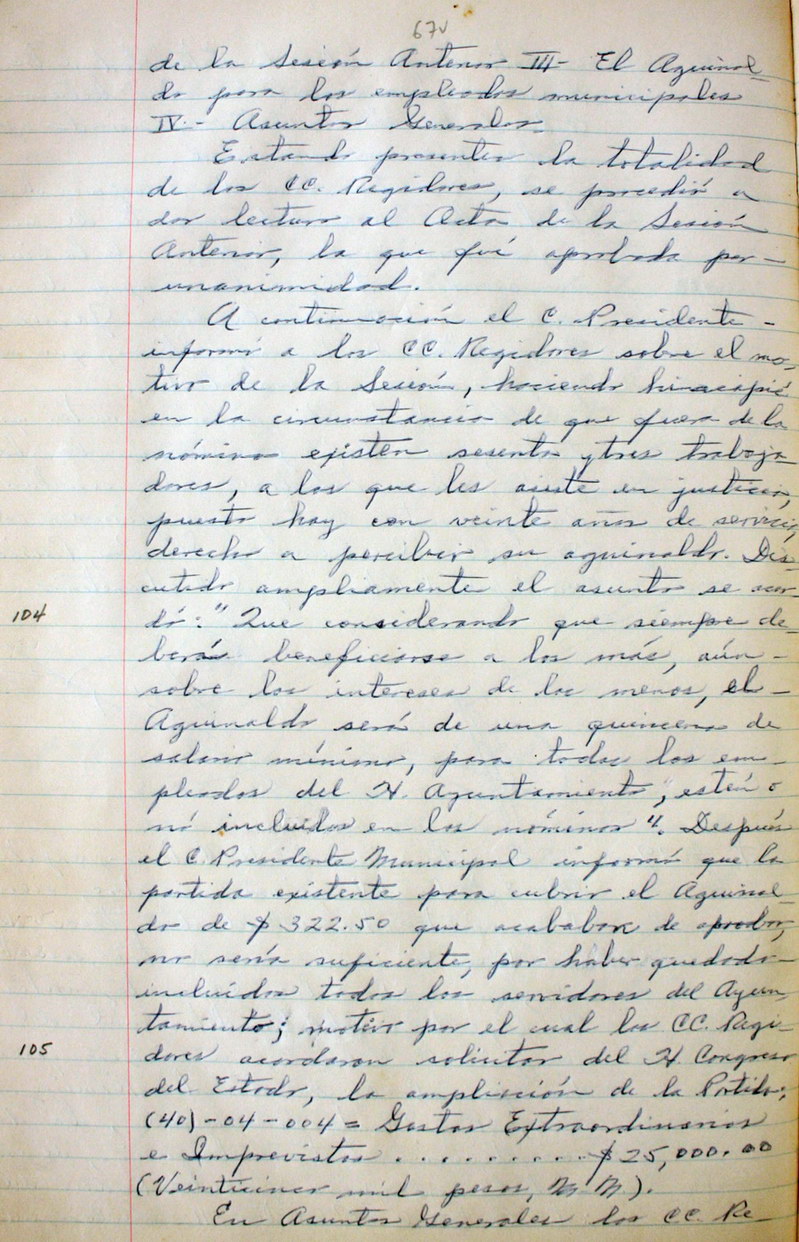 67v
de la Sesión Anterior III- El Aguinal
do para los empleados municipales
IV.- Asuntos Generales.
Estando presentes la totalidad
de los CC. Regidores, se procedió a
dar lectura al Acta de la Sesión
Anterior, la que fué aprobada por-
unanimidad.
A continuación el C. Presidente-
informó a los CC. Regidores sobre el mo-
tivo de la Sesión, haciendo hincapié
en la circunstancia de que fuera de la
nómina existen sesenta y tres trabaja-
dores, a los que les asiste en justicia,
puesto hay con veinte años de servicio,
derecho a percibir su aguinaldo. Dis-
cutido ampliamente el asunto se acor-
104 dó: "Que considerando que siempre de-
berá beneficiarse a los más, aún-
sobre los intereses de los menos, el-
Aguinaldo será de una quincena de
salario mínimo, para todos los em-
pleados del H. Ayuntamiento, estén o
nó incluidos en las nóminas". Después
el C. Presidente Municipal informó que la
partida existente para cubrir el Aguinal-
do de $322.50 que acababan de aprobar,
no sería suficiente, por haber quedado-
incluídos todos los servidores del Ayun-
tamiento; motivo por el cual los CC. Regi-
105 dores acordaron solicitar del H. Congreso
del Estado, la ampliación de la Partida:
(40)-04-004= Gastos Extraordinarios
e Imprevistos..........$25,000.00
(Veinticinco mil pesos, M N).
En Asuntos Generales los CC. Re-